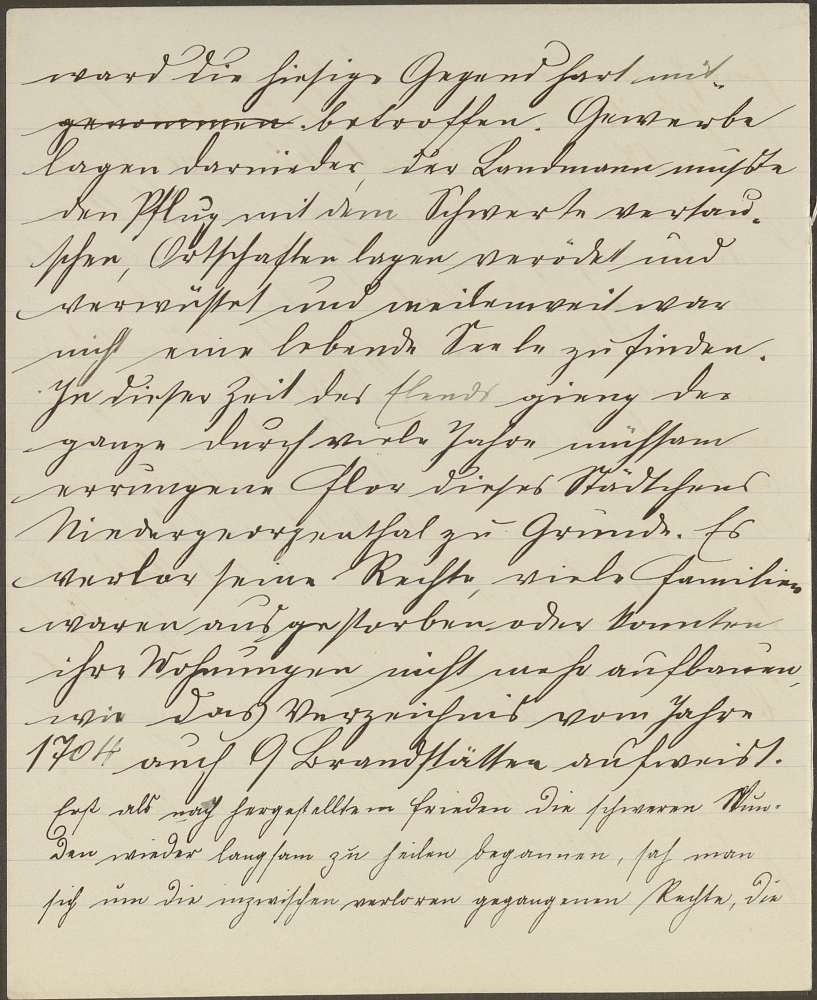 ward die hiesige Gegend hart mit-
genommen betroffen. Gewerbe
lagen darnieder, der Landmann mußte
den Pflug mit dem Schwerte vertau-
schen, Ortschaften lagen verödet und
verwüstet und meilenweit war
nicht eine lebende Seele zu finden.
In dieser Zeit des Elends gieng der
ganze durch viele Jahre mühsam
errungene Flor dieses Städtchens
Niedergeorgenthal zu Grunde. Es
verlor seine Rechte, viele Familien
waren ausgestorben oder konnten
ihre Wohnungen nicht mehr aufbauen,
wie das Verzeichnis vom Jahre
1704 auch 9 Brandstätten aufweist.
Erst als nach hergestelltem Frieden die schweren Wun-
den wieder langsam zu heilen begannen, sah man
sich um die inzwischen verloren gegangenen Rechte, die